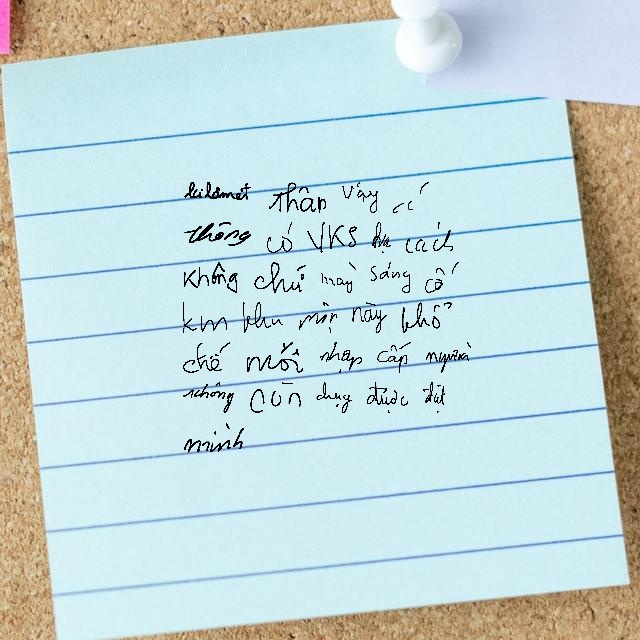 thân vậy có
thông có VKS hạ cách
không chứ may sáng cố
km khu mịn này khổ
chế mỗi nhạp cấp người
không còn dụng được đặt
mình